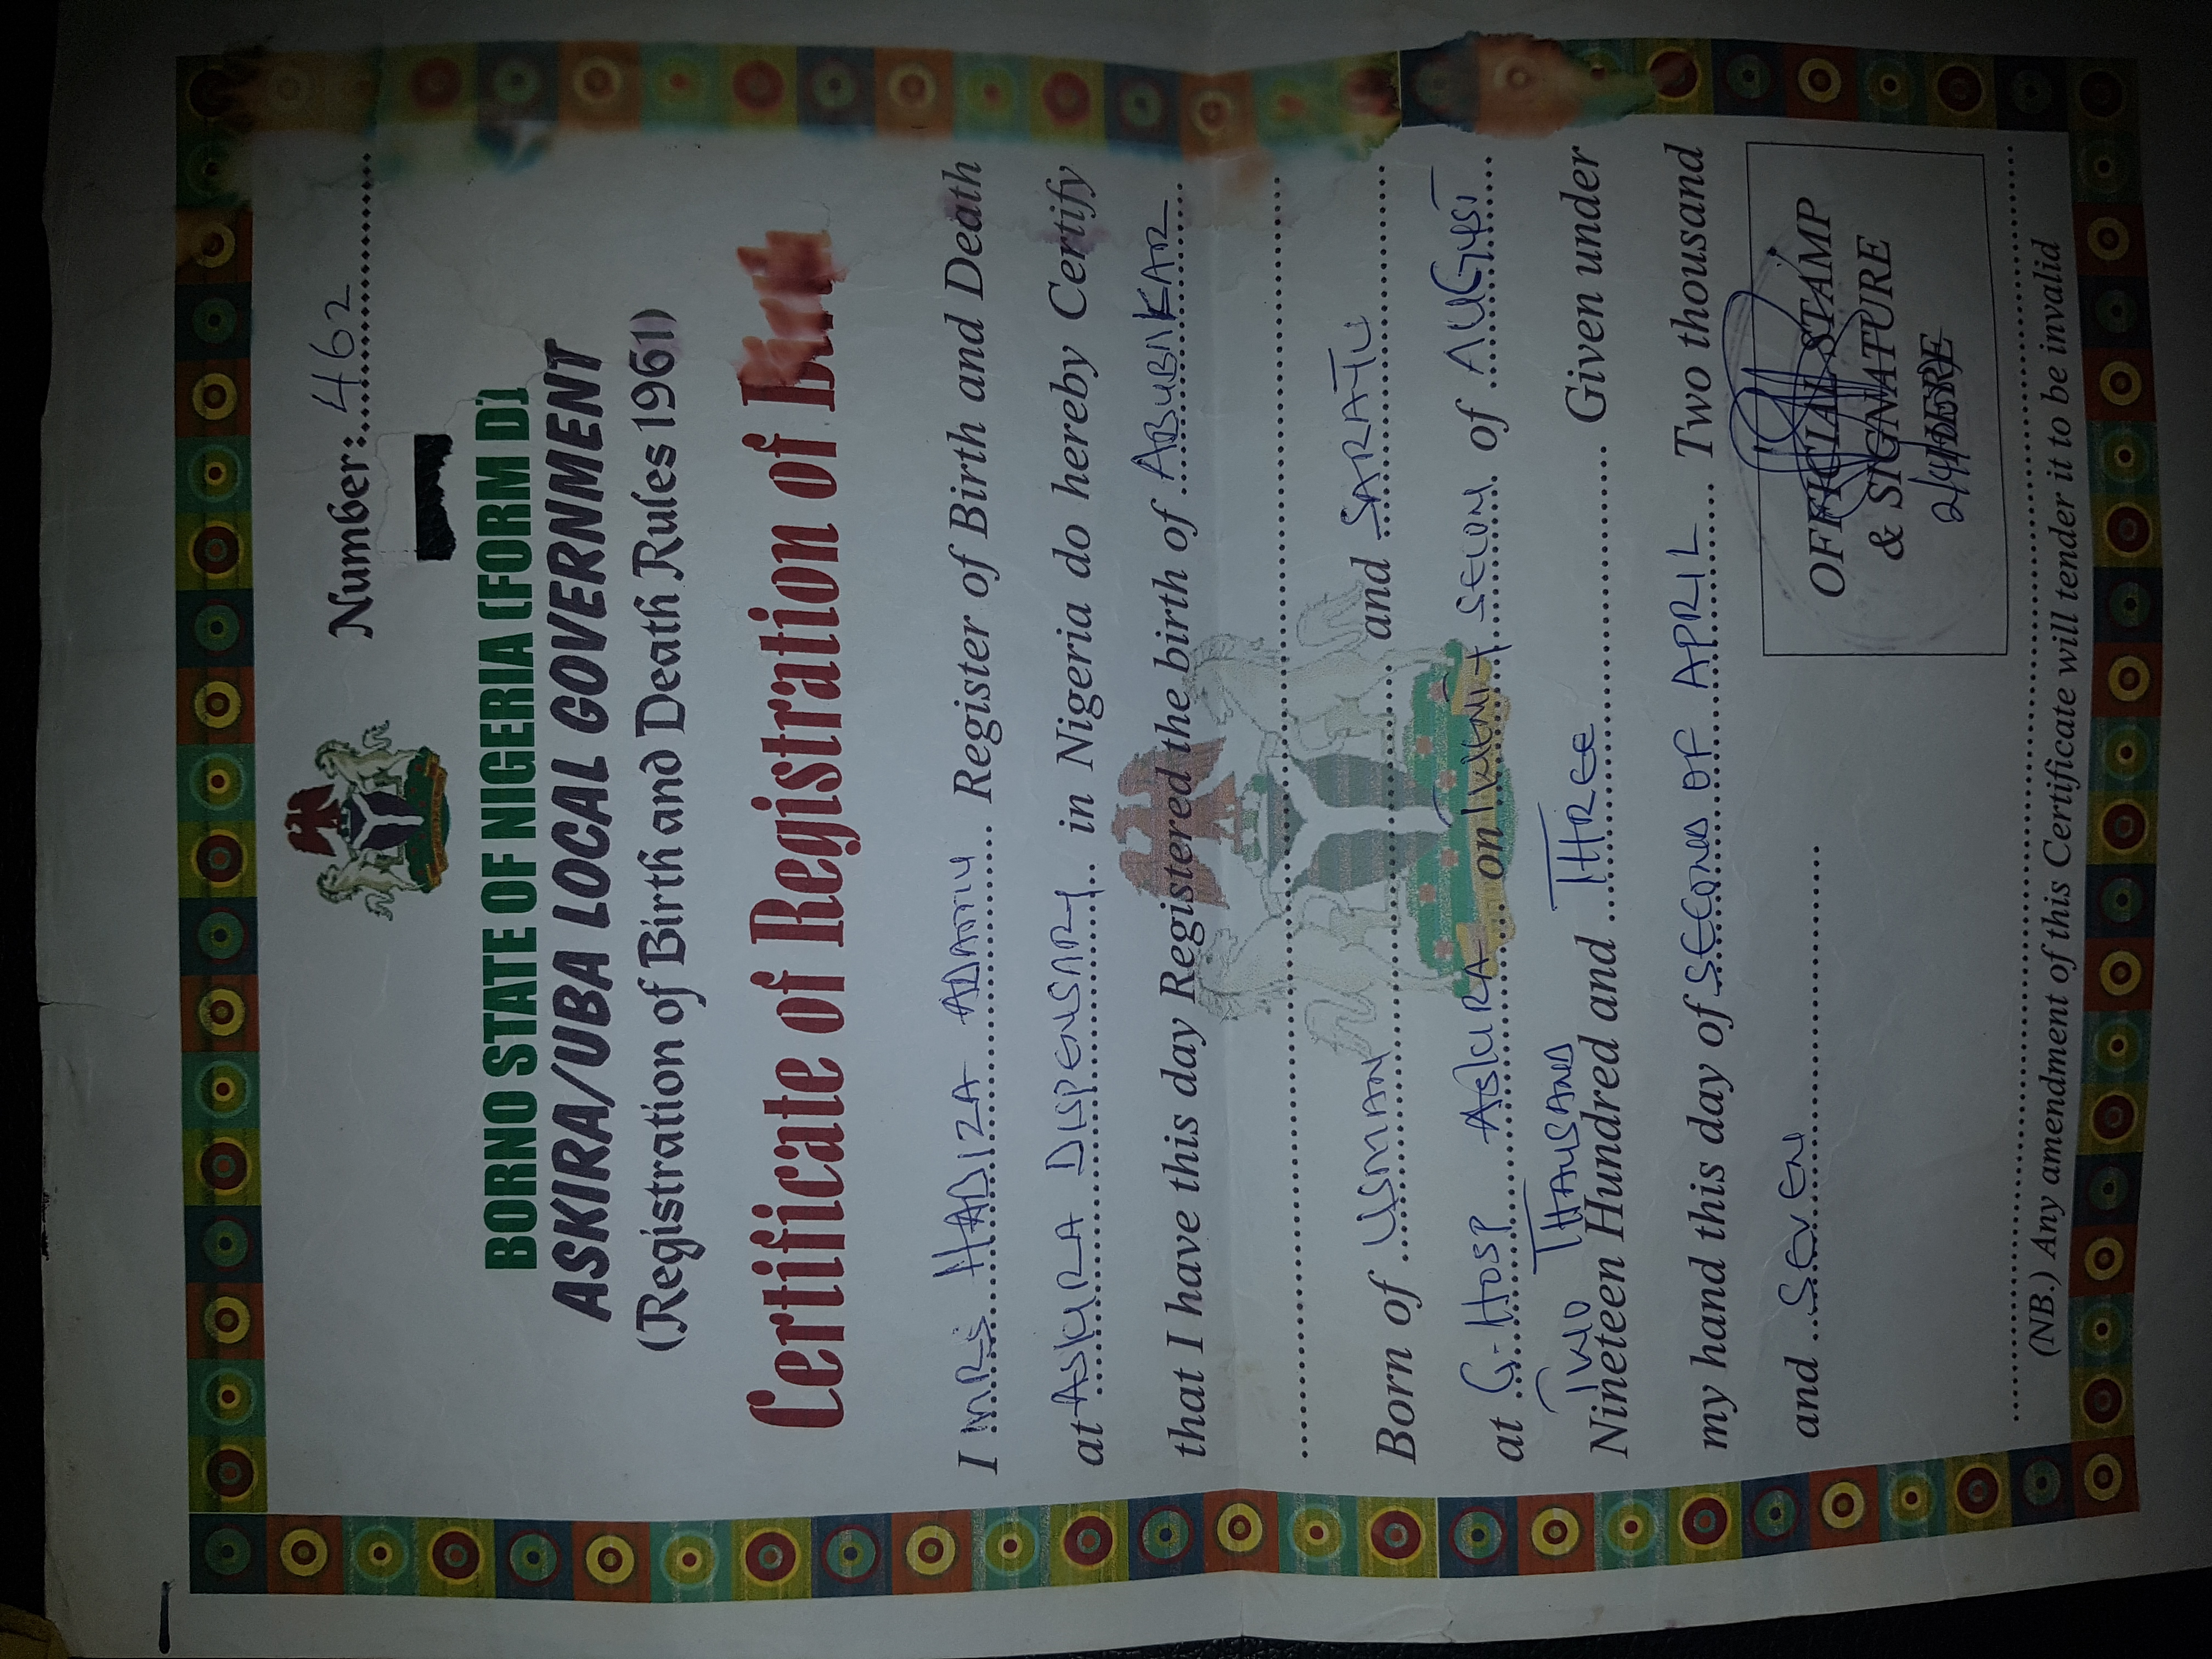 Number: 462
BORNO STATE OF NIGERIA (FORM D)
ASKIRA/UBA LOCAL GOVERNMENT
(Registration of Birth and Death Rules 1961)
Certificate of Registration of Birth
I MRS HADIZA ADAMU Register of Birth and Death
at ASKIRA DISPENSARY in Nigeria do hereby Certify
that I have this day Registered the birth of ABUBAKAR
Born of USMAN and SARATU
at G. HOSP ASKIRA on TWENTY SECON of AUGUST
TWO THAUSAND
Nineteen Hundred and THREE Given under
my hand this day of SECOND OF APRIL Two thousand
and SEVEN
OFFICIAL STAMP
& SIGNATURE
HERE
(NB.) Any amendment of this Certificate will tender it to be invalid